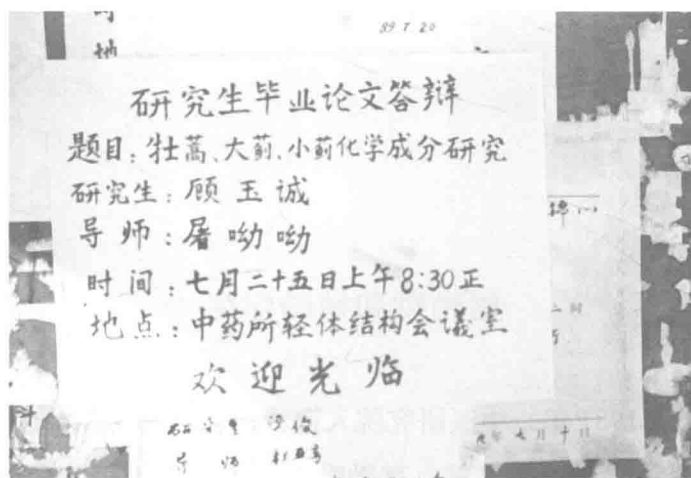 地
89.7.20
研究生毕业论文答辩
题目:牡蒿、大蓟、小蓟化学成分研究
研究生:顾玉诚
导师:屠呦呦
时间:七月二十五日上午8:30正
地点:中药所轻体结构会议室
欢迎光临
研究生
导师
年七月十日